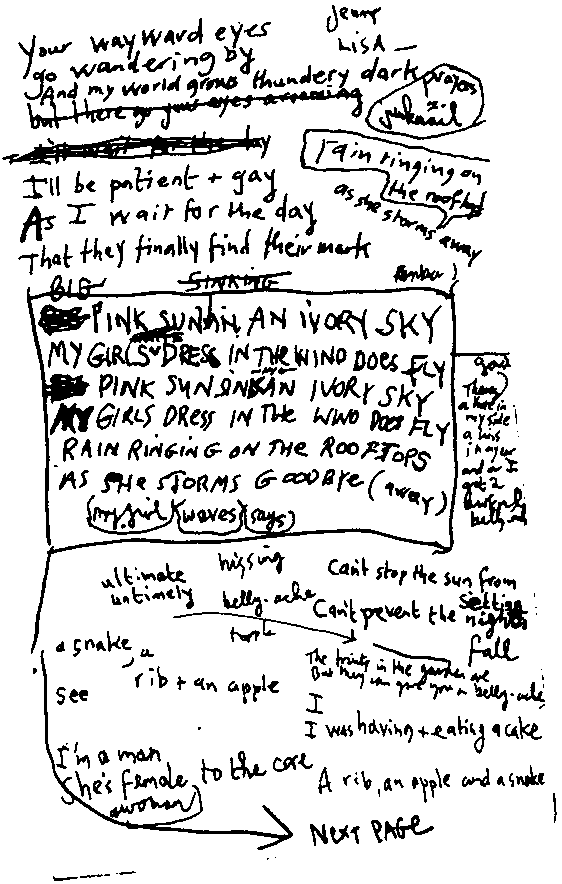 Your wayward eyes
go wandering by
And my world grows thundery dark
but there go your eyes
Jenny
Lisa
I'll be patient + gay
As I wait for the day
That they finally find their mark
Rain ringing on
the rooftop
as she storms away
BIG
SINKING
PINK SUN IN AN IVORY SKY
MY GIRLS DRESS IN THE WIND DOES FLY
PINK SUN SINKS AN IVORY SKY
MY GIRLS DRESS IN THE WIND DOES FLY
RAIN RINGING ON THE ROOFTOPS
AS SHE STORMS GOODBYE (away)
(my girl) (waves) (says)
a hole in
my side
and I
got 2
belly-ache
ultimate
untimely
hissing
belly-ache
Can't stop the sun from
setting
Can't prevent the nights
fall
a snake
see
a rib + an apple
The fruits in the garden are
But they can give you a belly-ache
I
I was having + eating a cake
I'm a man
She's female to the core
a woman
A rib, an apple and a snake
NEXT PAGE